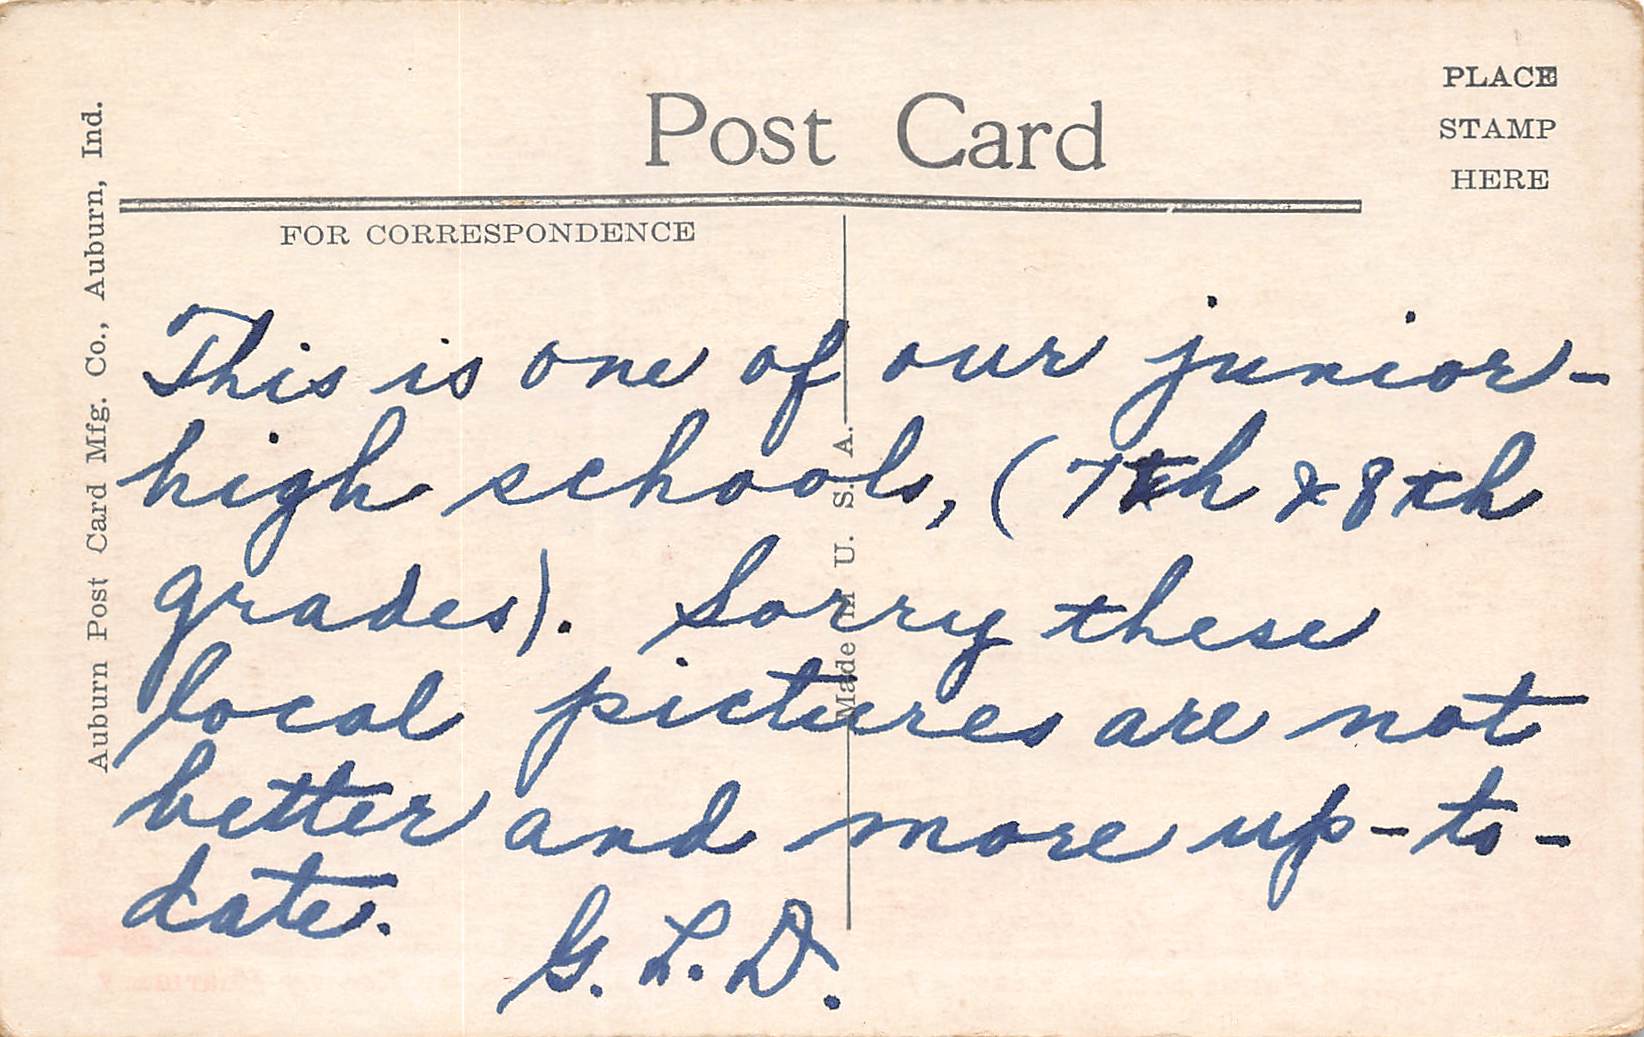 Post Card
PLACE
STAMP
HERE
FOR CORRESPONDENCE
Auburn Post Card Mfg. Co., Auburn, Ind.
Made in U. S. A.
This is one of our junior-
high schools, (7th & 8th
grades). Sorry these
local pictures are not
better and more up-to-
date.
G. L. D.